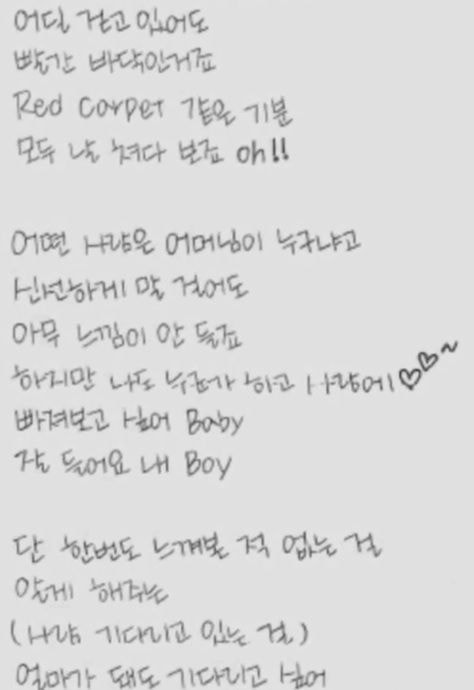 어딜 걷고 있어도
빨간 바닥인거죠
Red Carpet 같은 기분
모두 날 쳐다 보죠 oh!!
어떤 사람은 어머님이 누구냐고
신선하게 말 걸어도
아무 느낌이 안 들죠
하지만 나도 누군가 하고 사랑에♡♡~
빠져보고 싶어 Baby
잘 들어요 내 Boy
단 한번도 느껴본 적 없는 걸
알게 해주는
(사람 기다리고 있는 걸)
얼마가 돼도 기다리고 싶어